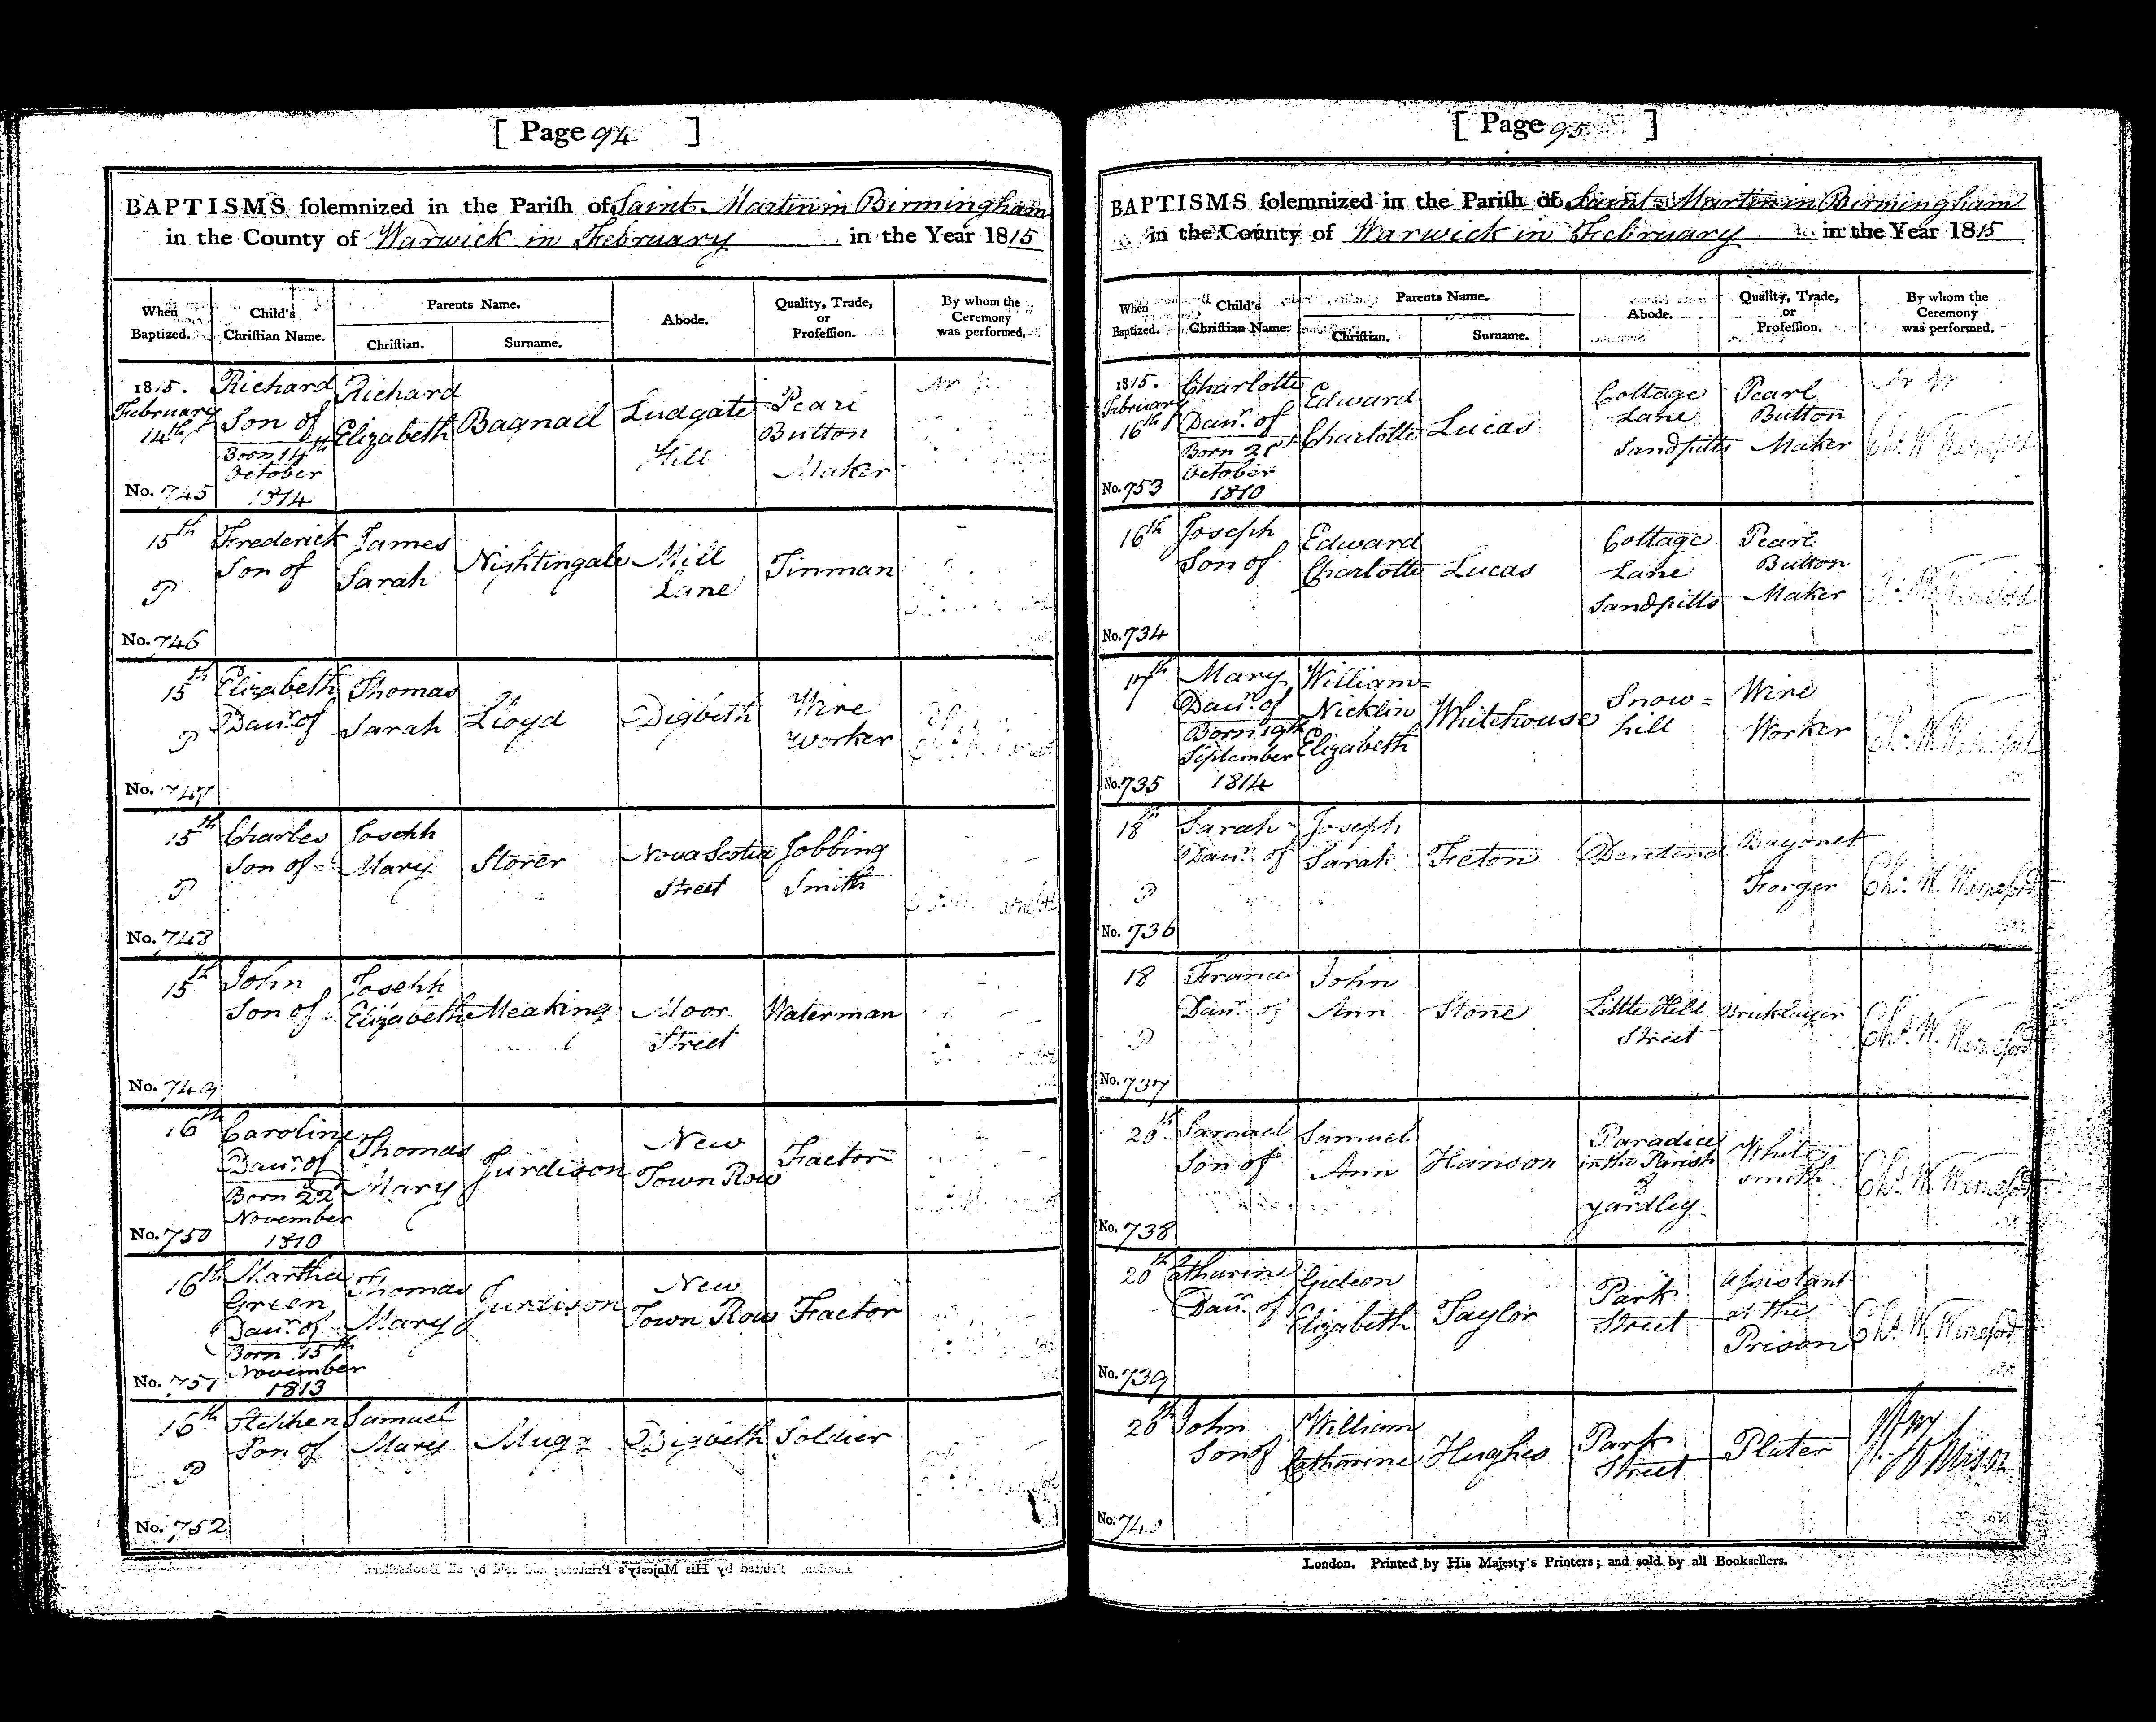 [ Page 94 ]
BAPTISMS solemnized in the Parish of Saint Martin in Birmingham
in the County of Warwick in February in the Year 1815
When Baptized.
Child's Christian Name.
Parents Name.
Christian.
Surname.
Abode.
Quality, Trade, or Profession.
By whom the Ceremony was performed.
1815. February 14th
No. 745
Richard Son of
Born 14th October 1814
Richard Elizabeth
Bagnall
Ludgate Hill
Pearl Button Maker
15th
P
No. 746
Frederick Son of
James Sarah
Nightingale
Mill Lane
Tinman
15th
P
No. 747
Elizabeth Daur. of
Thomas Sarah
Lloyd
Digbeth
Wire Worker
15th
P
No. 743
Charles Son of
Joseph Mary
Storer
Nova Scotia Street
Jobbing Smith
15th
No. 749
John Son of
Joseph Elizabeth
Meaking
Moor Street
Waterman
16th
No. 750
Caroline Daur. of
Born 22d November 1810
Thomas Mary
Jurdison
New Town Row
Factor
16th
No. 751
Martha Green Daur. of
Born 15th November 1813
Thomas Mary
Jurdison
New Town Row
Factor
16th
P
No. 752
Stephen Son of
Samuel Mary
Digbeth
Soldier
[ Page 95 ]
BAPTISMS solemnized in the Parish of Saint Martin in Birmingham
in the County of Warwick in February in the Year 1815
When Baptized.
Child's Christian Name.
Parents Name.
Christian.
Surname.
Abode.
Quality, Trade, or Profession.
By whom the Ceremony was performed.
1815. February 16th
No. 753
Charlotte Daur. of
Born 21st October 1810
Edward Charlotte
Lucas
Cottage Lane Sandpitts
Pearl Button Maker
16th
No. 734
Joseph Son of
Edward Charlotte
Lucas
Cottage Lane Sandpitts
Pearl Button Maker
17th
No. 735
Mary Daur. of
Born 19th September 1814
William Nicklin Elizabeth
Whitehouse
Snow = hill
Wire Worker
18th
P
No. 736
Sarah Daur. of
Joseph Sarah
Feton
Deritend
Bayonet Forger
Chs. W. Warneford
18
P
No. 737
Daur. of
John Ann
Stone
Little Hill Street
Bricklayer
Chs. W. Warneford
20th
No. 738
Samuel Son of
Samuel Ann
Hanson
Paradice in the Parish of Yardley
White smith
Chs. W. Warneford
20th
No. 739
Catharine Daur. of
Gideon Elizabeth
Taylor
Park Street
Assistant at the Prison
Chs. W. Warneford
20th
No. 740
John Son of
William Catharine
Hughes
Park Street
Plater
London. Printed by His Majesty's Printers; and sold by all Booksellers.